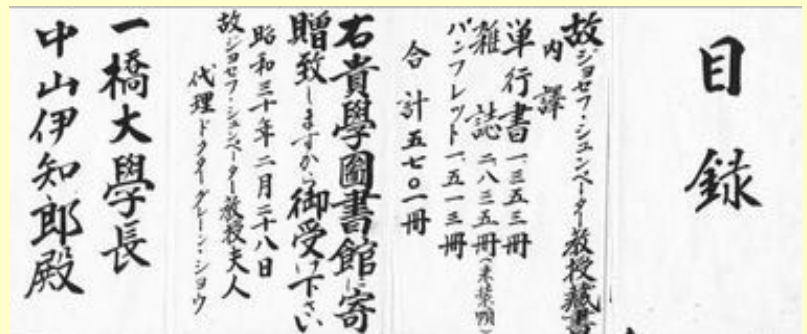 目録
故ジョセフ・シュンペーター教授藏書
内譯
単行書 一、三五三冊
雑誌 二、八三五冊(未装幀)
パンフレット 一、五一三冊
合計五七〇一冊
右貴學圖書館に寄
贈致しますから御受け下さい
昭和三十年二月二十八日
故ジョセフ・シュンペーター教授夫人
代理ドクターグレーン・ショウ
一橋大學長
中山伊知郎殿